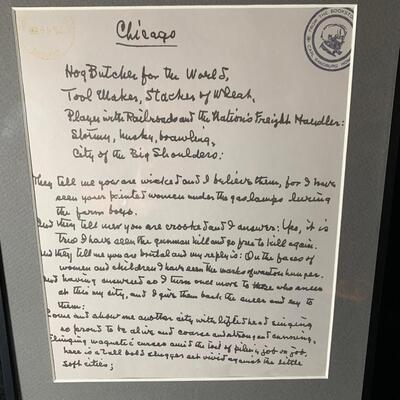 Chicago
Hog Butcher for the World,
Tool Maker, Stacker of Wheat,
Player with Railroads and the Nation's Freight Handler:
Stormy, husky, brawling,
City of the Big Shoulders:
They tell me you are wicked and I believe them, for I have
seen your painted women under the gas lamps luring
the farm boys.
And they tell me you are crooked and I answer: Yes, it is
true I have seen the gunman kill and go free to kill again.
And they tell me you are brutal and my reply is: On the faces of
women and children I have seen the marks of wanton hunger.
And having answered so I turn once more to those who sneer
at this my city, and I give them back the sneer and say to
them:
Come and show me another city with lifted head singing
so proud to be alive and coarse and strong and cunning.
Flinging magnetic curses amid the toil of piling job on job,
here is a tall bold slugger set vivid against the little
soft cities;
FROM THE BOOKSTORE
CARL SANDBURG HOME